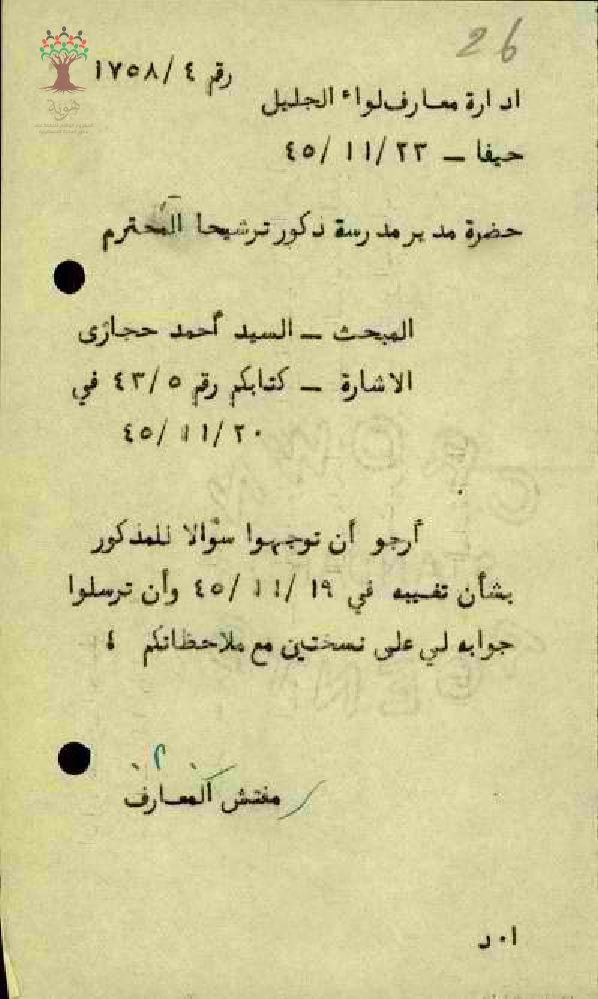 26
رقم ٤/١٧٥٨
ادارة معارف لواء الجليل
حيفا – ٢٣/١١/٤٥
حضرة مدير مدرسة ذكور ترشيحا المحترم
المبحث – السيد أحمد حجازى
الاشارة – كتابكم رقم ٤٣/٥ في
٤٥/١١/٢٠
أرجو أن توجهوا سؤالا للمذكور
بشأن تغيبه في ١٩/١١/٤٥ وأن ترسلوا
جوابه لي على نسختين مع ملاحظاتكم ؛
مفتش المعارف
ا٠د
هوية
CROWN